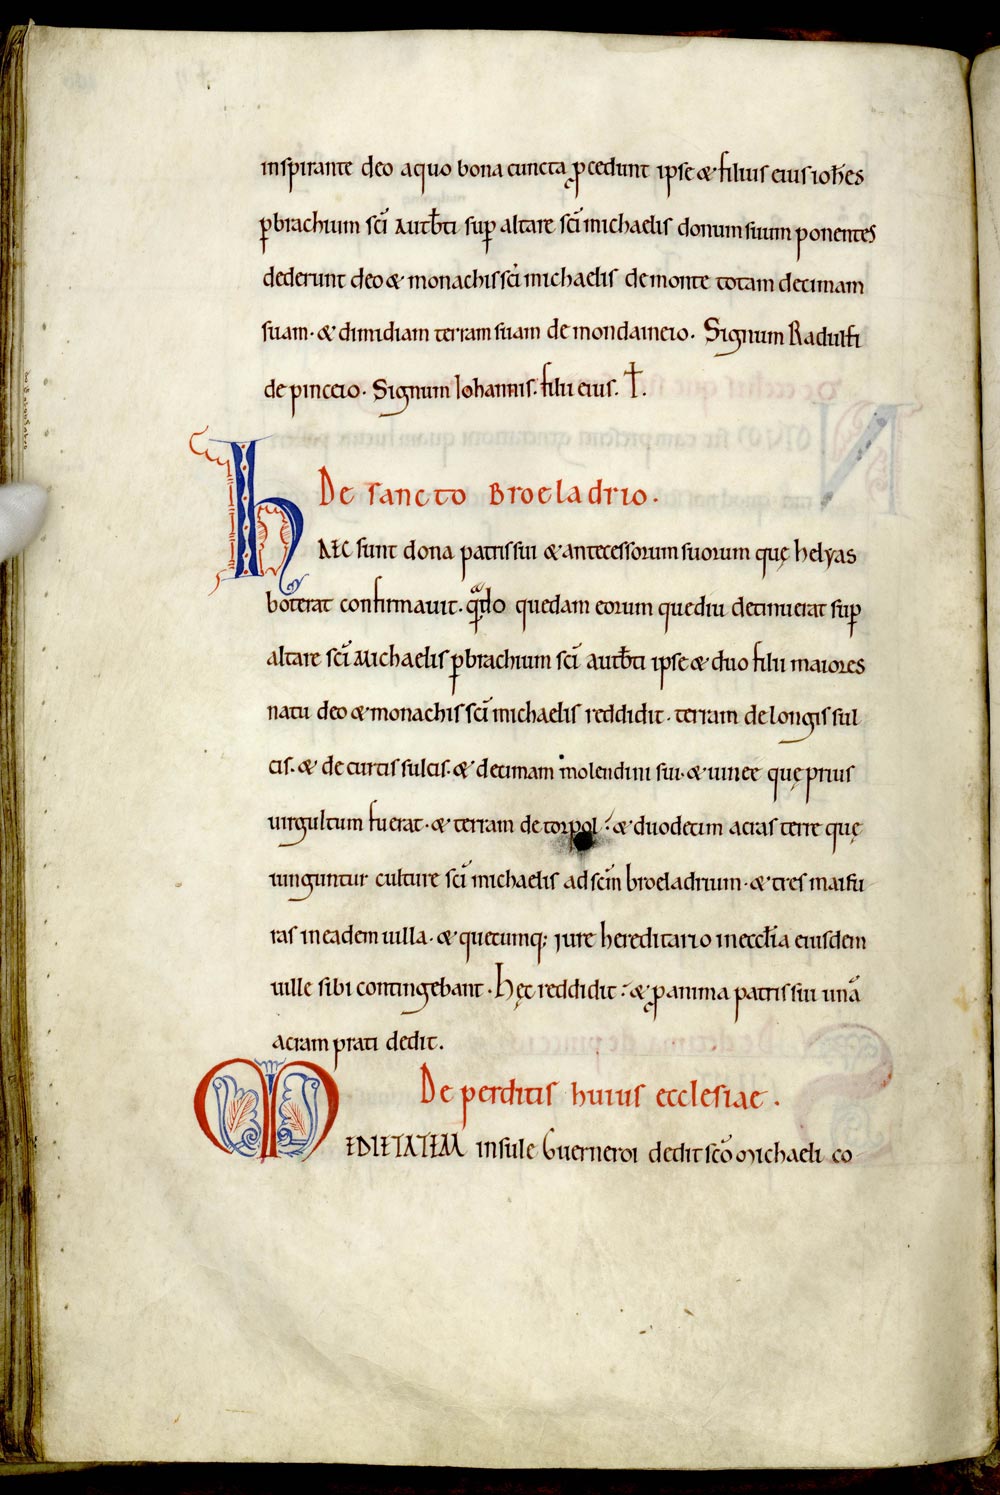 inspirante deo aquo bona cuncta ꝓcedunt ipse & filius eius ioh̄es
ꝑbrachium sc̄i Autb̄ti suꝑ altare sc̄i michaelis donum suum ponentes
dederunt deo & monachis sc̄i michaelis demonte totam decimam
suam· & dimidiam terram suam de mondaincio. Signum Radulfi
de pinceio. Signum Iohannis. filii eius. †.
De sancto Broeladrio.
hÆC sunt dona patris sui & antecessorum suorum quę helyas
boterat confirmauit. quedam eorum que diu detinuerat suꝑ
altare sc̄i Michaelis ꝑbrachium sc̄i autb̄ti ipse & duo filii maiores
natu deo & monachis sc̄i michaelis reddidit. terram de longis sul
cis. & de curtis sulcis. & decimam molendini sui. & uinee quę prius
uirgultum fuerat. & terram de torpol. & duodecim acras terre quę
iunguntur culture sc̄i michaelis ad sc̄m broeladrium. & tres maisu
ras in eadem uilla. & quecumq; iure hereditario in eccl̄ia eiusdem
uille sibi contingebant. hęc reddidit. & ꝓ anima patris sui unā
acram prati dedit.
De perditis huius ecclesiae.
MEDIETATEM insule Guerneroi dedit sc̄o michaeli co